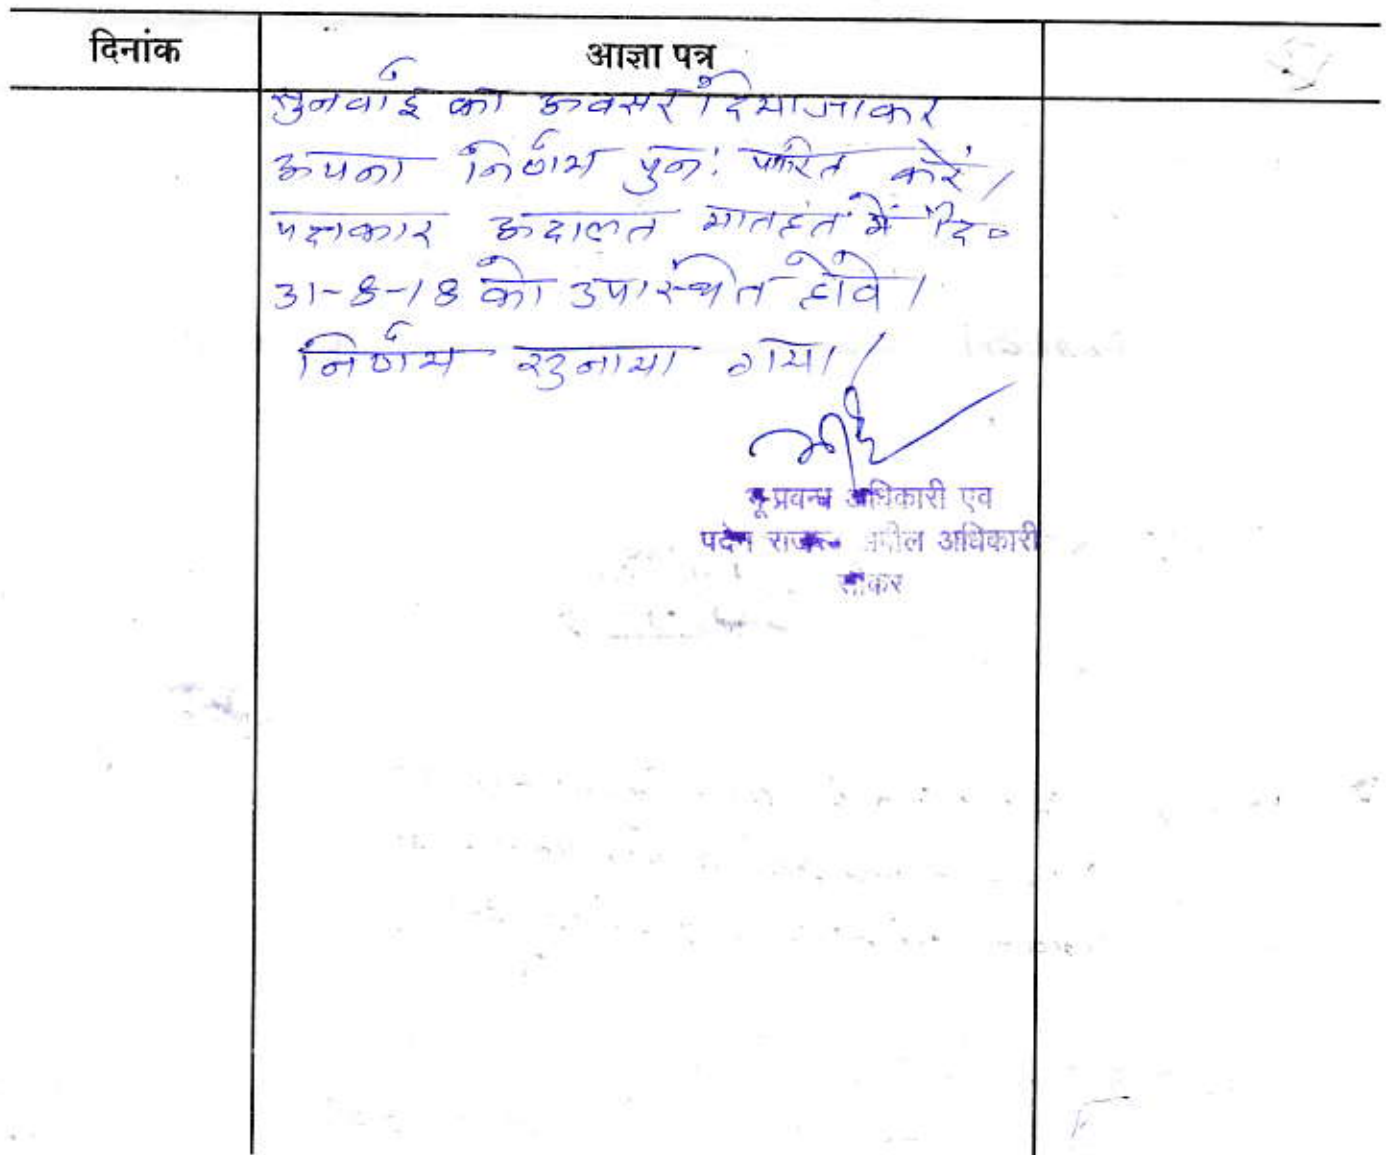 दिनांक आज्ञा पत्र
सुनवाई का अवसर दिया जाकर
अपना निर्णय पुन: पारित करें।
पक्षकार अदालत मातहत में दि०
31-8-18 को उपस्थित होवें।
निर्णय सुनाया गया।
भू-प्रवन्ध अधिकारी एव
पदेन राजस्व अपील अधिकारी
सीकर